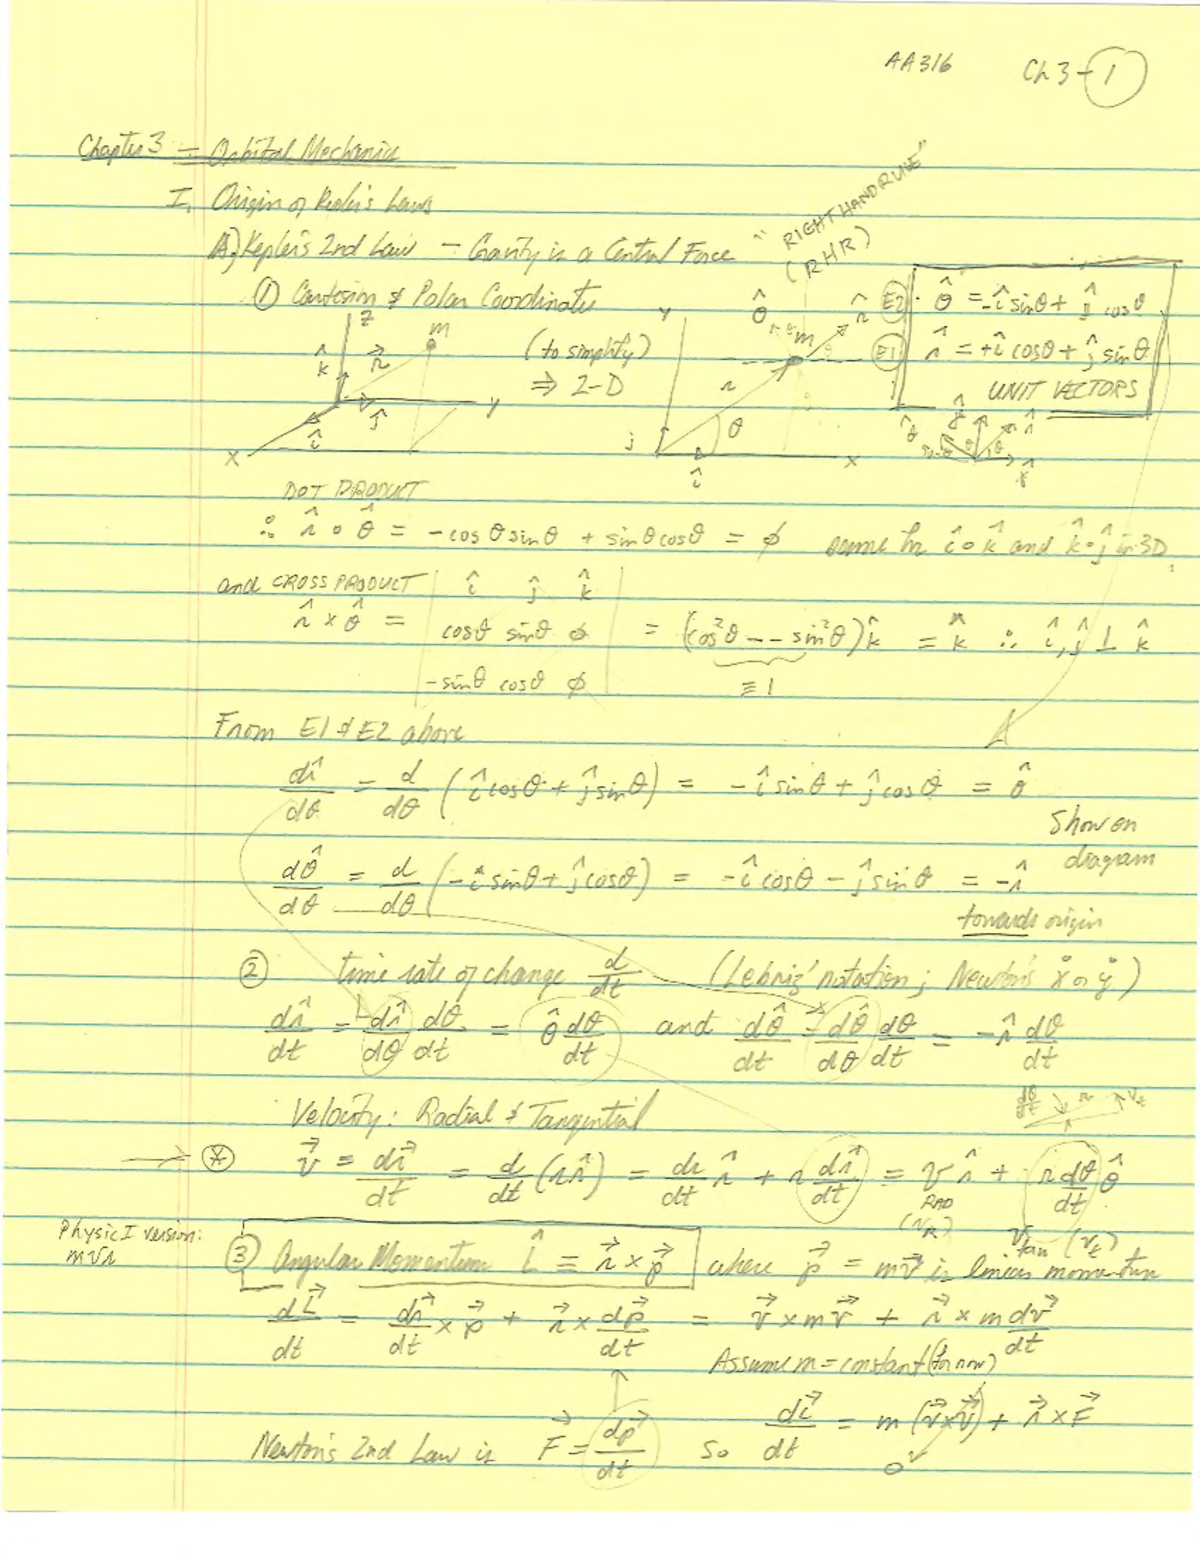 AA316 Ch 3-1
Chapter 3 - Orbital Mechanics
I. Origin of Kepler's Laws
A) Kepler's 2nd Law - Gravity is a Central Force
"RIGHT HAND RULE"
(RHR)
① Cartesian & Polar Coordinates
(to simplify)
⇒ 2-D
z k̂ r⃗ m y ĵ î x
y θ̂ r̂ m r θ j î x
E2 θ̂ = -î sinθ + ĵ cosθ
E1 r̂ = +î cosθ + ĵ sinθ
UNIT VECTORS
DOT PRODUCT
∴ r̂ ∘ θ̂ = -cosθ sinθ + sinθ cosθ = ϕ same for î∘k̂ and k̂∘ĵ in 3D.
and CROSS PRODUCT
r̂ × θ̂ = | î ĵ k̂ |
| cosθ sinθ ϕ | = (cos²θ - - sin²θ) k̂ = k̂ ∴ î, ĵ ⊥ k̂
| -sinθ cosθ ϕ | ≡ 1
From E1 & E2 above
dr̂/dθ = d/dθ (î cosθ + ĵ sinθ) = -î sinθ + ĵ cosθ = θ̂
Show on
diagram
dθ̂/dθ = d/dθ (-î sinθ + ĵ cosθ) = -î cosθ - ĵ sinθ = -r̂
towards origin
② time rate of change d/dt (Lebniz' notation; Newton's ẋ or ẏ)
dr̂/dt = dr̂/dθ dθ/dt = θ̂ dθ/dt and dθ̂/dt = dθ̂/dθ dθ/dt = -r̂ dθ/dt
dθ/dt r Vt
Velocity: Radial & Tangential
→ * v⃗ = dr⃗/dt = d/dt (r r̂) = dr/dt r̂ + r dr̂/dt = v r̂ + r dθ/dt θ̂
RAD
(VR) Vtan (Vt)
Physic I version:
mvr
③ Angular Momentum L̂ = r⃗ × p⃗ where p⃗ = mv⃗ is linear momentum
dL⃗/dt = dr⃗/dt × p⃗ + r⃗ × dp⃗/dt = v⃗ × mv⃗ + r⃗ × m dv⃗/dt
Assume m = constant (for now)
Newton's 2nd Law is F⃗ = dp⃗/dt so dL⃗/dt = m (v⃗ × v⃗) + r⃗ × F⃗
0